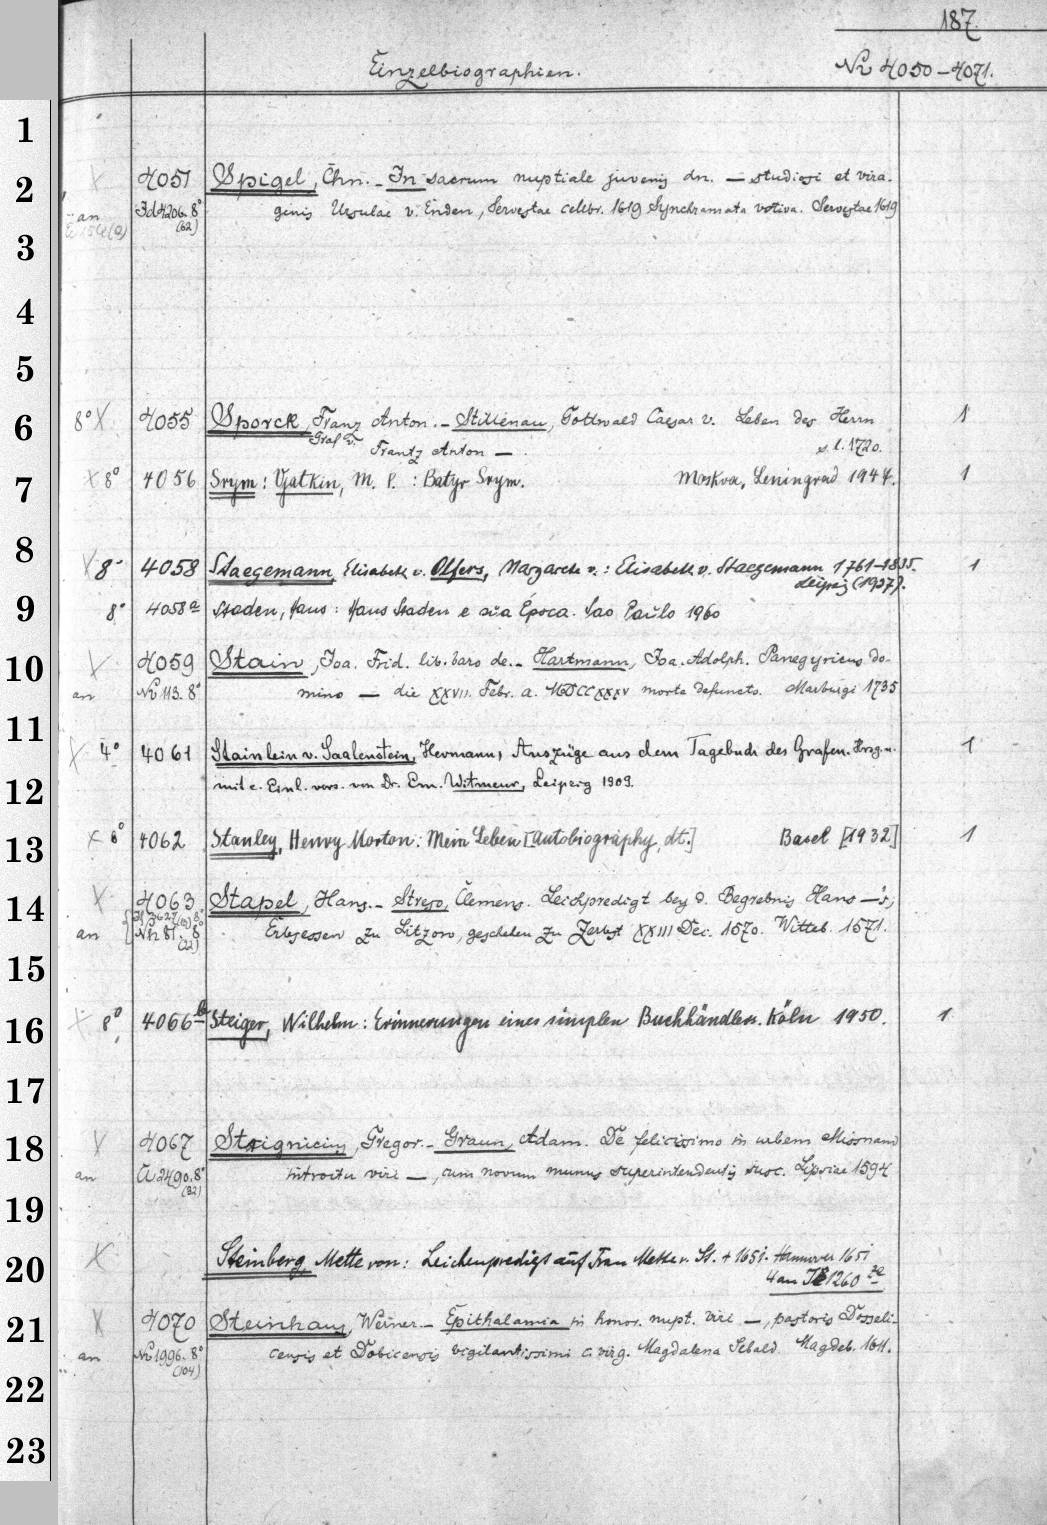 187.
Einzelbiographien.
Nr 4050-4071.
1
2 X 4051 Spigel, Chn. - In sacrum nuptiale juvenis dn. — studiosi et vira-
an 3d 4206. 8° (62) ginis Ursulae v. Enden, Servestae celebr. 1619 Synchramata votiva. Servestae 1619
3
4
5
6 8° X 4055 Sporck, Franz Anton. - Stillenau, Gottwald Caesar v. Leben des Herrn 1
Graf v. Frantz Anton —. s. l. 1720.
7 X 8° 4056 Srym: Vjatkin, M. P.: Batyr Srym. Moskva, Leningrad 1947. 1
8 X 8° 4058 Staegemann, Elisabeth v. Olfers, Margarete v.: Elisabeth v. Staegemann 1761-1835. 1
Leipzig (1937).
9 8° 4058a Staden, Hans: Hans Staden e sua Época. Sao Paulo 1960
10 X 4059 Stain, Joa. Frid. lib. baro de. - Hartmann, Joa. Adolph. Panegyricus do-
an Nr 113. 8° mino — die XXVII. Febr. a. MDCCXXXV morte defuncto. Marburgi 1735
11
X 4° 4061 Stainlein v. Saalenstein, Hermann, Auszüge aus dem Tagebuch des Grafen. Hrsg. u. 1
12 mit e. Einl. vers. von Dr. Em. Witmeur, Leipzig 1909.
13 X 8° 4062 Stanley, Henry Morton: Mein Leben [Autobiography, dt.] Basel [1932] 1
14 X 4063 Stapel, Hans. - Streso, Clemens. Leichpredigt bey d. Begrebnis Hans —s,
an Nr 81. 8° (22) Erbsessen zu Litzow, geschehen zu Zerbst XXIII Dec. 1570. Witteb. 1571.
15
16 X 8° 4066b Steiger, Wilhelm: Erinnerungen eines simplen Buchhändlers. Köln 1950. 1
17
18 X 4067 Steignicius, Gregor. - Graun, Adam. De felicissimo in urbem Misnam
an Ci 2490. 8° (32) introitu viri —, cum novum munus superintendentis susc. Lipsiae 1594
19
20 X Steinberg, Mette von: Leichenpredigt auf Frau Mette v. St. † 1651. Hannover 1651
4 an TE 1260
21 X 4070 Steinhaus, Werner. - Epithalamia in honor. nupt. viri —, pastoris Dosseli-
an Nr 1996. 8° (104) censis et Dobicensis vigilantissimi c. virg. Magdalena Sebald. Magdeb. 1611.
22
23